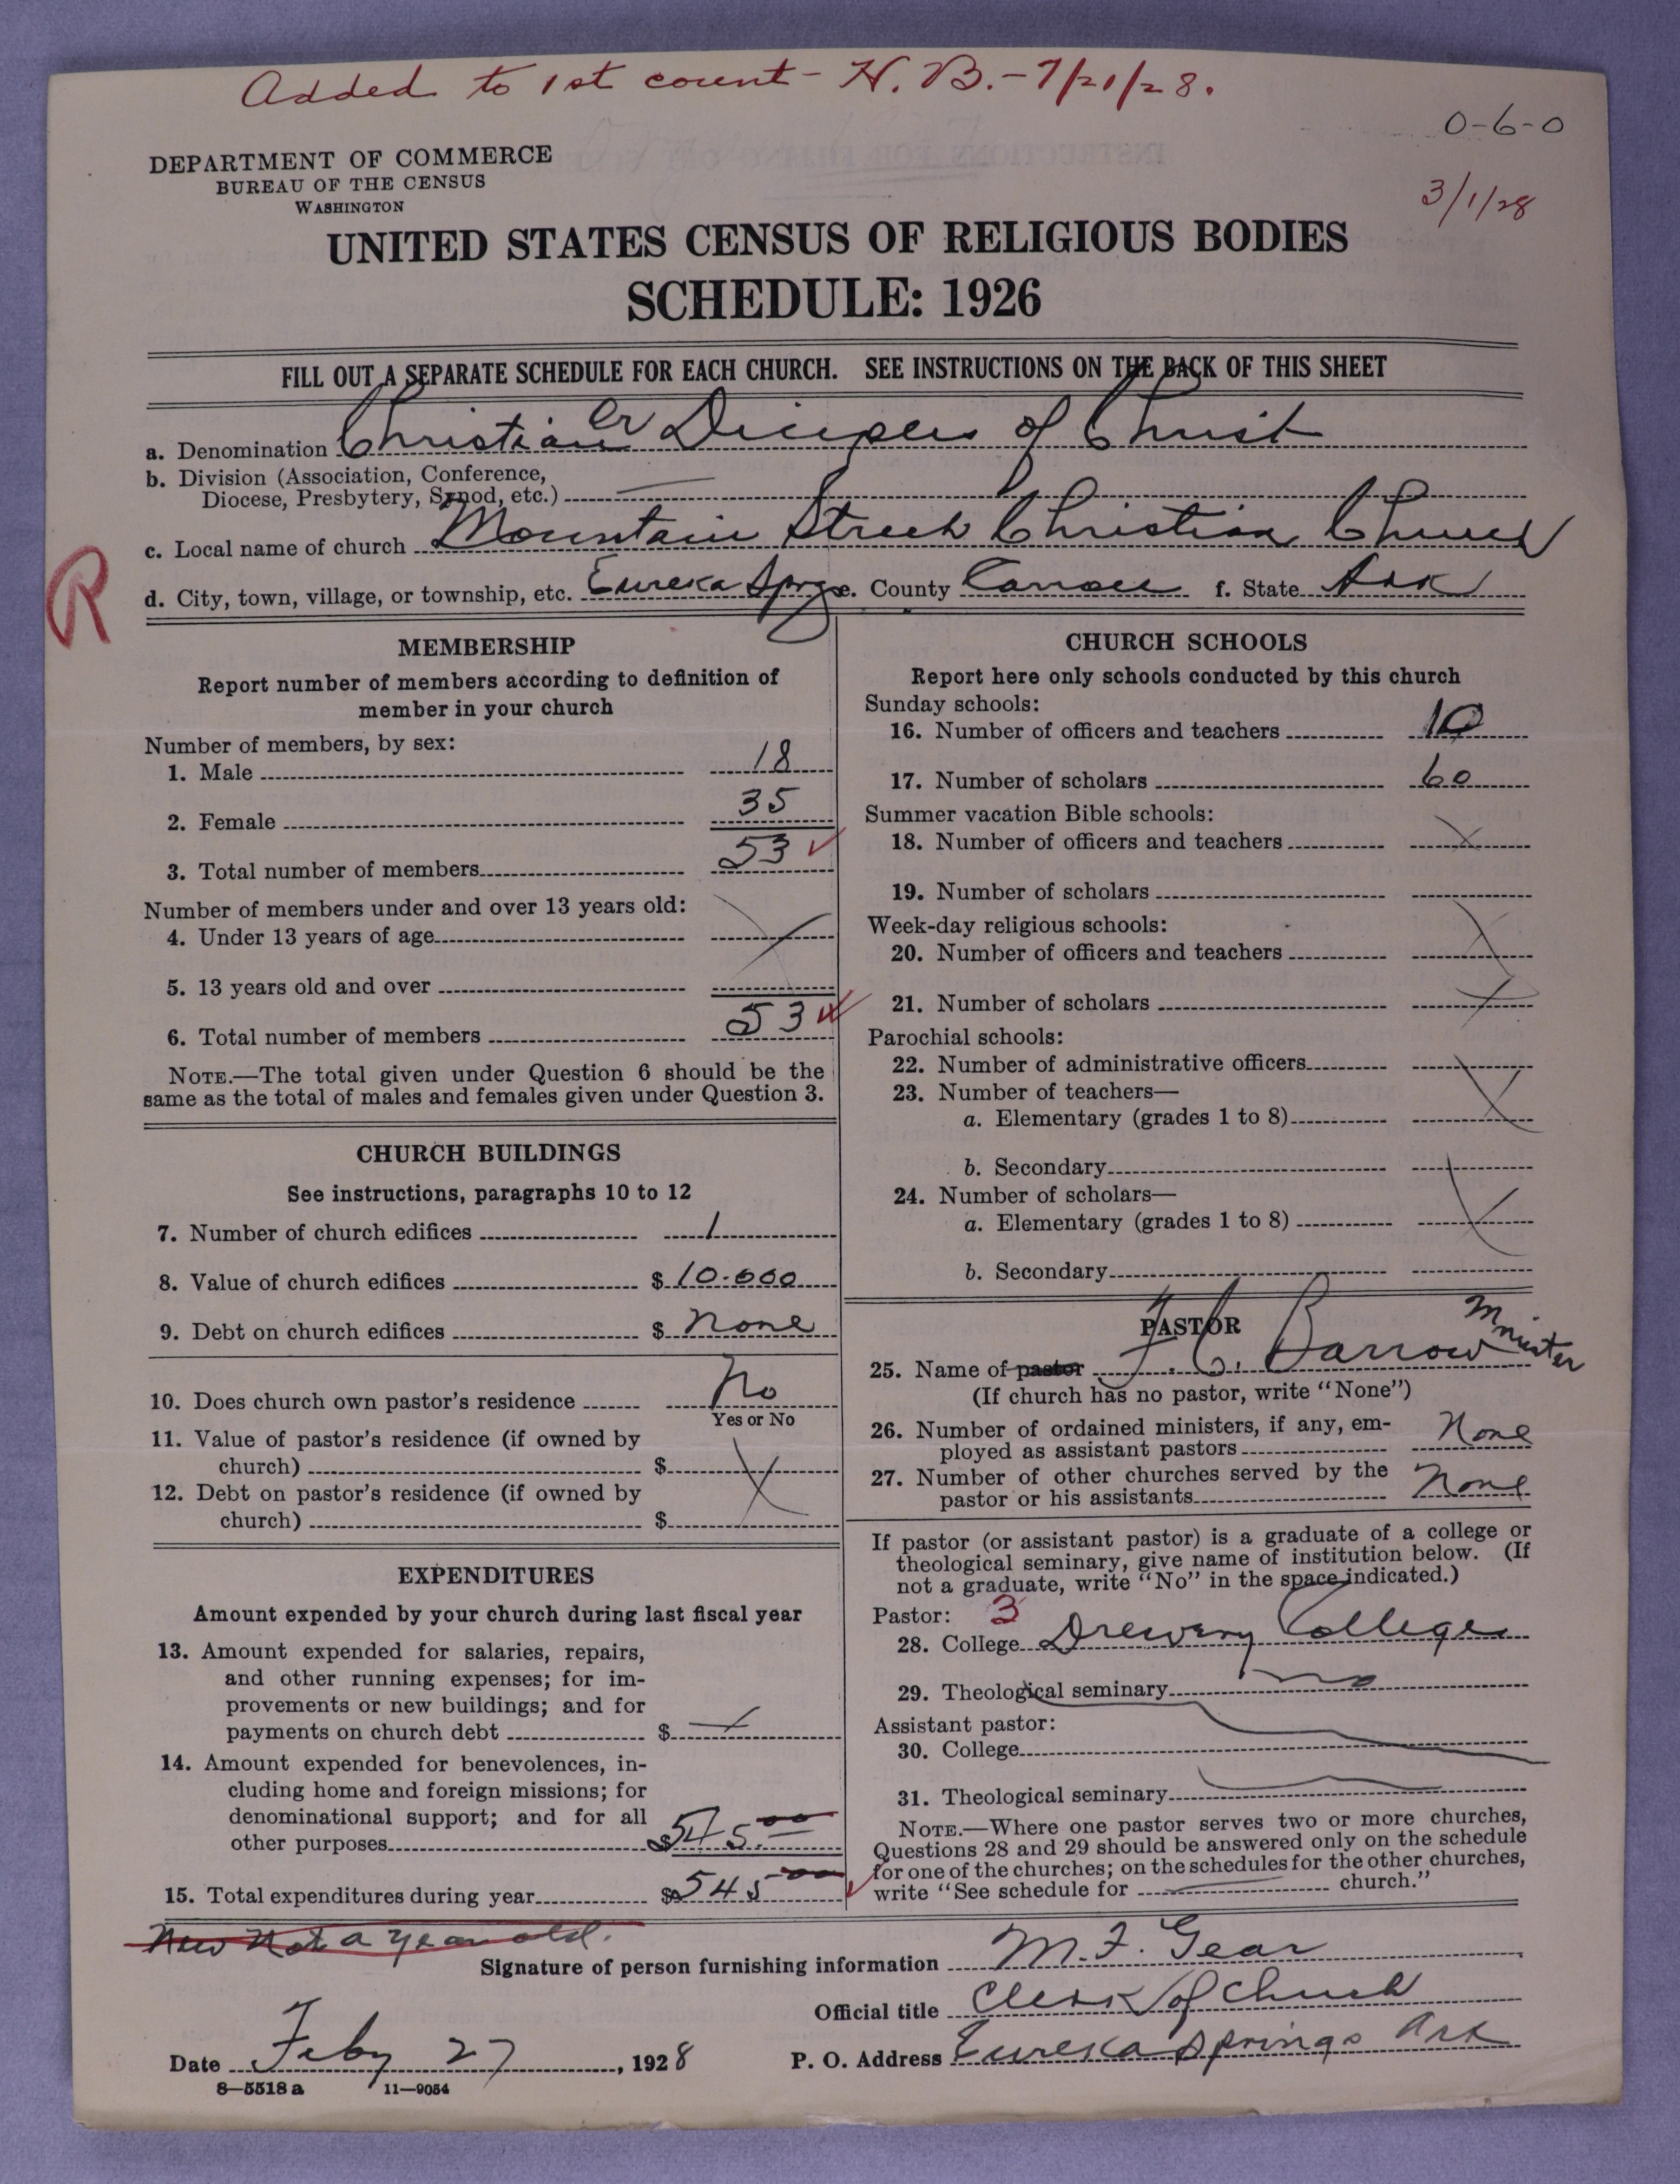 Added to 1st count - H. B. - 7/21/28.
0-6-0
3/1/28
DEPARTMENT OF COMMERCE
BUREAU OF THE CENSUS
WASHINGTON
UNITED STATES CENSUS OF RELIGIOUS BODIES
SCHEDULE: 1926
FILL OUT A SEPARATE SCHEDULE FOR EACH CHURCH. SEE INSTRUCTIONS ON THE BACK OF THIS SHEET
a. Denomination Christian or Diciples of Christ
b. Division (Association, Conference,
Diocese, Presbytery, Synod, etc.) —
c. Local name of church Mountain Street Christian Church
R
d. City, town, village, or township, etc. Eureka Sprgs e. County Carroll f. State Ark
MEMBERSHIP
Report number of members according to definition of
member in your church
Number of members, by sex:
1. Male 18
2. Female 35
3. Total number of members 53
Number of members under and over 13 years old:
4. Under 13 years of age
5. 13 years old and over
6. Total number of members 53
NOTE.—The total given under Question 6 should be the
same as the total of males and females given under Question 3.
CHURCH BUILDINGS
See instructions, paragraphs 10 to 12
7. Number of church edifices 1
8. Value of church edifices $ 10.000
9. Debt on church edifices $ None
10. Does church own pastor's residence No
Yes or No
11. Value of pastor's residence (if owned by
church) $
12. Debt on pastor's residence (if owned by
church) $
EXPENDITURES
Amount expended by your church during last fiscal year
13. Amount expended for salaries, repairs,
and other running expenses; for im-
provements or new buildings; and for
payments on church debt $
14. Amount expended for benevolences, in-
cluding home and foreign missions; for
denominational support; and for all
other purposes $545.00
15. Total expenditures during year $545.00
New Not a year old.
CHURCH SCHOOLS
Report here only schools conducted by this church
Sunday schools:
16. Number of officers and teachers 10
17. Number of scholars 60
Summer vacation Bible schools:
18. Number of officers and teachers
19. Number of scholars
Week-day religious schools:
20. Number of officers and teachers
21. Number of scholars
Parochial schools:
22. Number of administrative officers
23. Number of teachers—
a. Elementary (grades 1 to 8)
b. Secondary
24. Number of scholars—
a. Elementary (grades 1 to 8)
b. Secondary
PASTOR
25. Name of pastor F. C. Barrow Minister
(If church has no pastor, write "None")
26. Number of ordained ministers, if any, em-
ployed as assistant pastors None
27. Number of other churches served by the
pastor or his assistants None
If pastor (or assistant pastor) is a graduate of a college or
theological seminary, give name of institution below. (If
not a graduate, write "No" in the space indicated.)
Pastor: 3
28. College Drewery College
29. Theological seminary no
Assistant pastor:
30. College
31. Theological seminary
NOTE.—Where one pastor serves two or more churches,
Questions 28 and 29 should be answered only on the schedule
for one of the churches; on the schedules for the other churches,
write "See schedule for church."
Signature of person furnishing information M. F. Gear
Official title Clerk of Church
Date Feby 27, 1928 P. O. Address Eureka Springs Ark
8—5518 a 11—9054